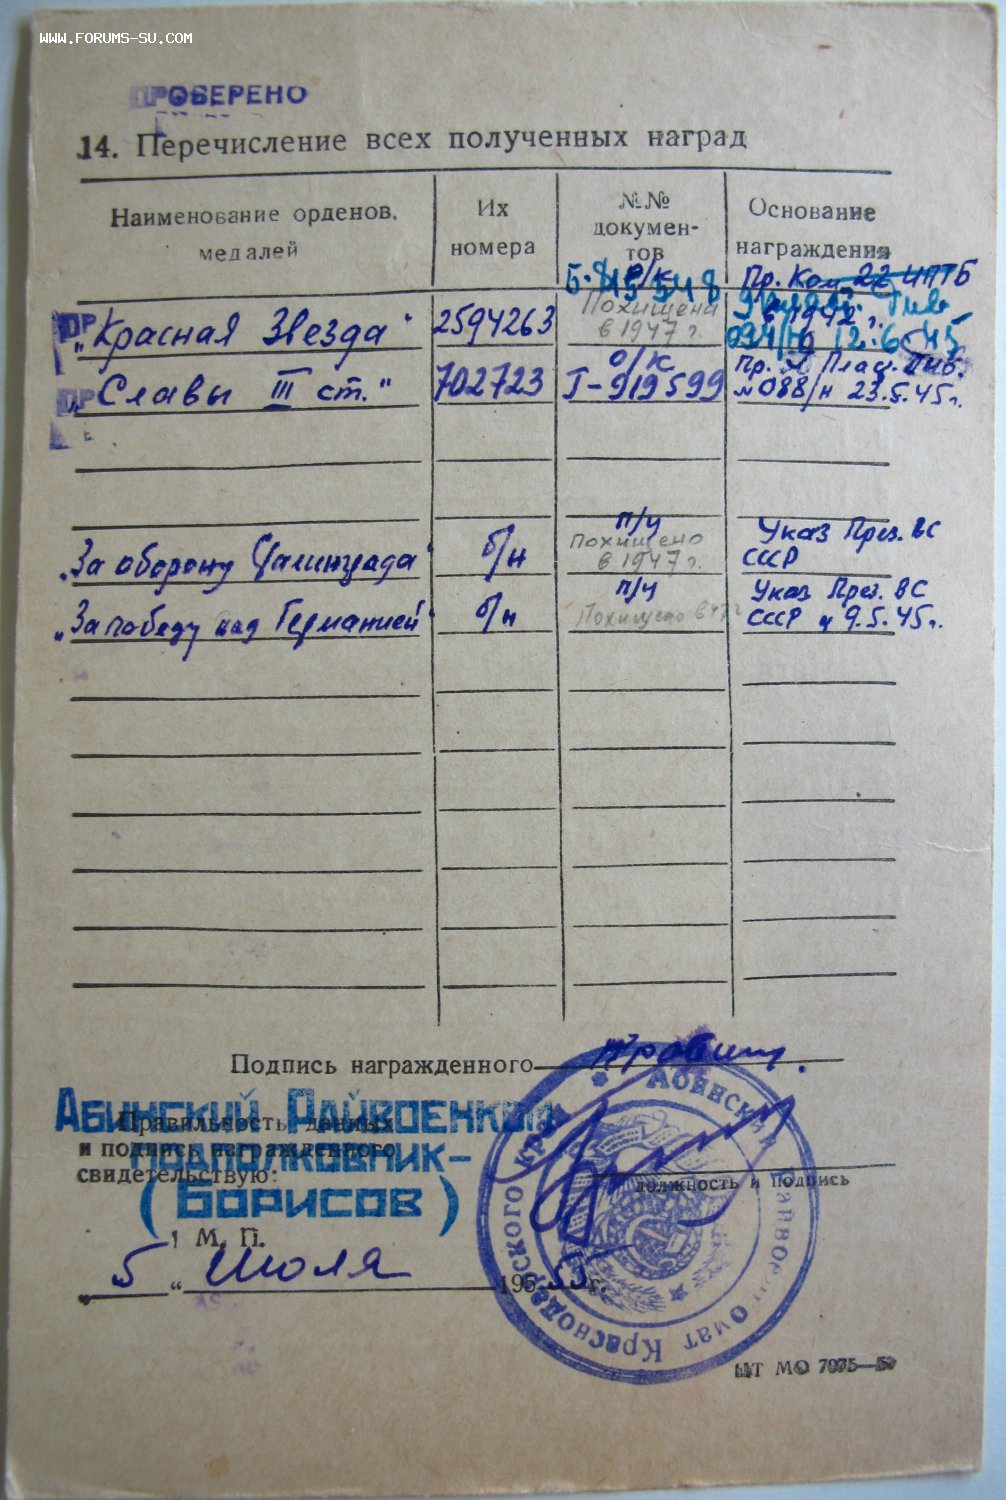 WWW.FORUMS-SU.COM
ПРОВЕРЕНО
14. Перечисление всех полученных наград
Наименование орденов, медалей
Их номера
№№ докумен-
тов
Основание награждения
о/к
Б.
Пр. Ком 22 ИПТБ
„Красная Звезда"
2594263
Похищена
в 1947 г.
в 1942 г.
12.6.45
ПР
„Славы III ст."
702723
о/к
I-919599
Пр.
№ 088/н 23.5.45г.
ПР
„За оборону Сталинграда"
б/н
п/у
похищено
в 1947 г.
Указ През. ВС
СССР
„За победу над Германией"
б/н
п/у
Похищено в 47 г
Указ През. ВС
СССР 9.5.45г.
Подпись награжденного
Абинский Райвоенком
подполковник-
(Борисов)
Правильность данных
и подпись награжденного
свидетельствую:
должность и подпись
М. П.
5 “ Июля 195 55 г.
Абинский райвоенкомат Краснодарского края
ЦТ МО 7075—